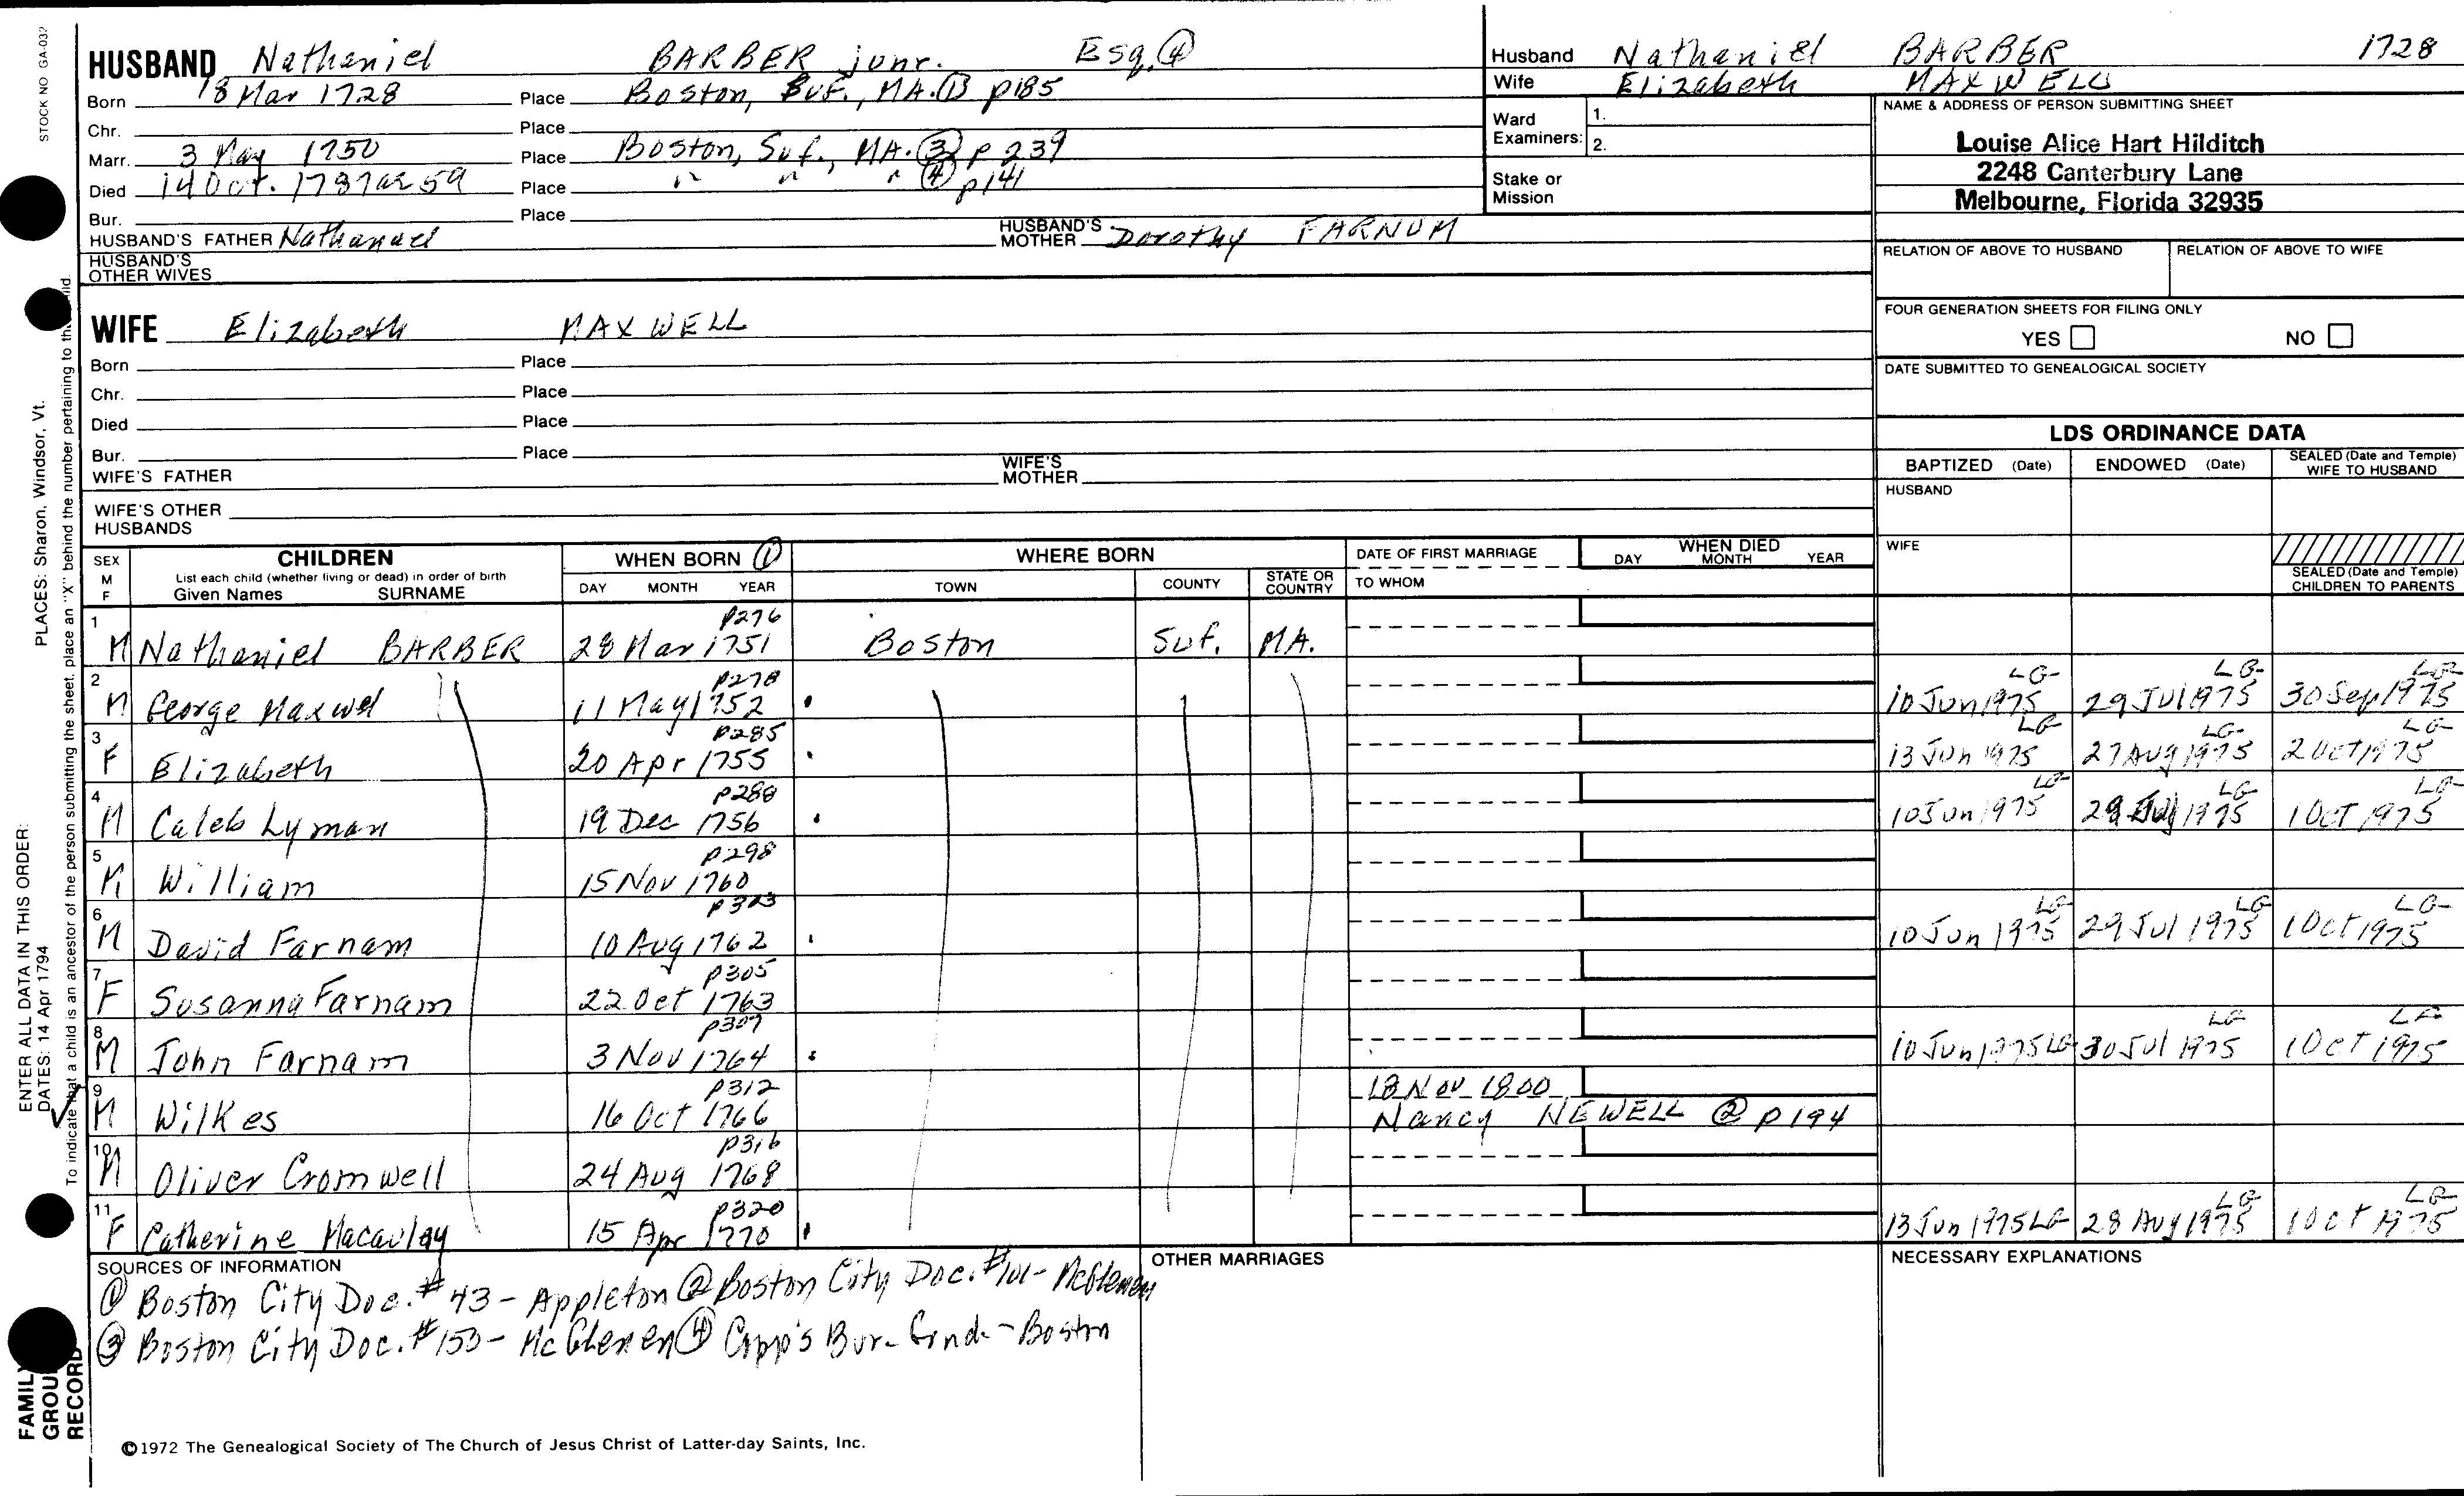 STOCK NO GA-03?
HUSBAND Nathaniel BARBER junr. Esq. ④
Born 18 Mar 1728 Place Boston, Suf., MA. ① p185
Chr. Place
Marr. 3 May 1750 Place Boston, Suf., MA. ③ p 239
Died 14 Oct. 1787 ae 59 Place " " " ④ p141
Bur. Place
HUSBAND'S FATHER Nathanael HUSBAND'S MOTHER Dorothy FARNUM
HUSBAND'S OTHER WIVES
WIFE Elizabeth MAXWELL
Born Place
Chr. Place
Died Place
Bur. Place
WIFE'S FATHER WIFE'S MOTHER
WIFE'S OTHER HUSBANDS
Husband Nathaniel BARBER 1728
Wife Elizabeth MAXWELL
Ward Examiners: 1.
2.
Stake or Mission
NAME & ADDRESS OF PERSON SUBMITTING SHEET
Louise Alice Hart Hilditch
2248 Canterbury Lane
Melbourne, Florida 32935
RELATION OF ABOVE TO HUSBAND RELATION OF ABOVE TO WIFE
FOUR GENERATION SHEETS FOR FILING ONLY
YES NO
DATE SUBMITTED TO GENEALOGICAL SOCIETY
LDS ORDINANCE DATA
BAPTIZED (Date) ENDOWED (Date) SEALED (Date and Temple) WIFE TO HUSBAND
HUSBAND
WIFE
SEALED (Date and Temple) CHILDREN TO PARENTS
SEX M F CHILDREN WHEN BORN ① WHERE BORN DATE OF FIRST MARRIAGE WHEN DIED
List each child (whether living or dead) in order of birth
Given Names SURNAME DAY MONTH YEAR TOWN COUNTY STATE OR COUNTRY TO WHOM DAY MONTH YEAR
1 M Nathaniel BARBER 28 Mar 1751 p276 Boston Suf. MA.
2 M George Maxwel 11 May 1752 p278 10 Jun 1975 LG 29 Jul 1975 LG 30 Sep 1975 LG
3 F Elizabeth 20 Apr 1755 p285 13 Jun 1975 LG 27 Aug 1975 LG 2 Oct 1975 LG
4 M Caleb Lyman 19 Dec 1756 p288 10 Jun 1975 LG 29 Jul 1975 LG 1 Oct 1975 LG
5 M William 15 Nov 1760 p298
6 M David Farnam 10 Aug 1762 p303 10 Jun 1975 LG 29 Jul 1975 LG 1 Oct 1975 LG
7 F Susanna Farnam 22 Oct 1763 p305
8 M John Farnam 3 Nov 1764 p307 10 Jun 1975 LG 30 Jul 1975 LG 1 Oct 1975 LG
9 M Wilkes 16 Oct 1766 p312 18 Nov 1800
Nancy NEWELL ② p 194
10 M Oliver Cromwell 24 Aug 1768 p316
11 F Catherine Macaulay 15 Apr 1770 p320 13 Jun 1975 LG 28 Aug 1975 LG 1 Oct 1975 LG
SOURCES OF INFORMATION
① Boston City Doc. #43 - Appleton ② Boston City Doc. #101 - McGlenen
③ Boston City Doc. #150 - McGlenen ④ Copp's Bur. Grnd. - Boston
OTHER MARRIAGES
NECESSARY EXPLANATIONS
©1972 The Genealogical Society of The Church of Jesus Christ of Latter-day Saints, Inc.
ENTER ALL DATA IN THIS ORDER:
DATES: 14 Apr 1794 PLACES: Sharon, Windsor, Vt.
To indicate that a child is an ancestor of the person submitting the sheet, place an "X" behind the number pertaining to that child.
FAMILY GROUP RECORD